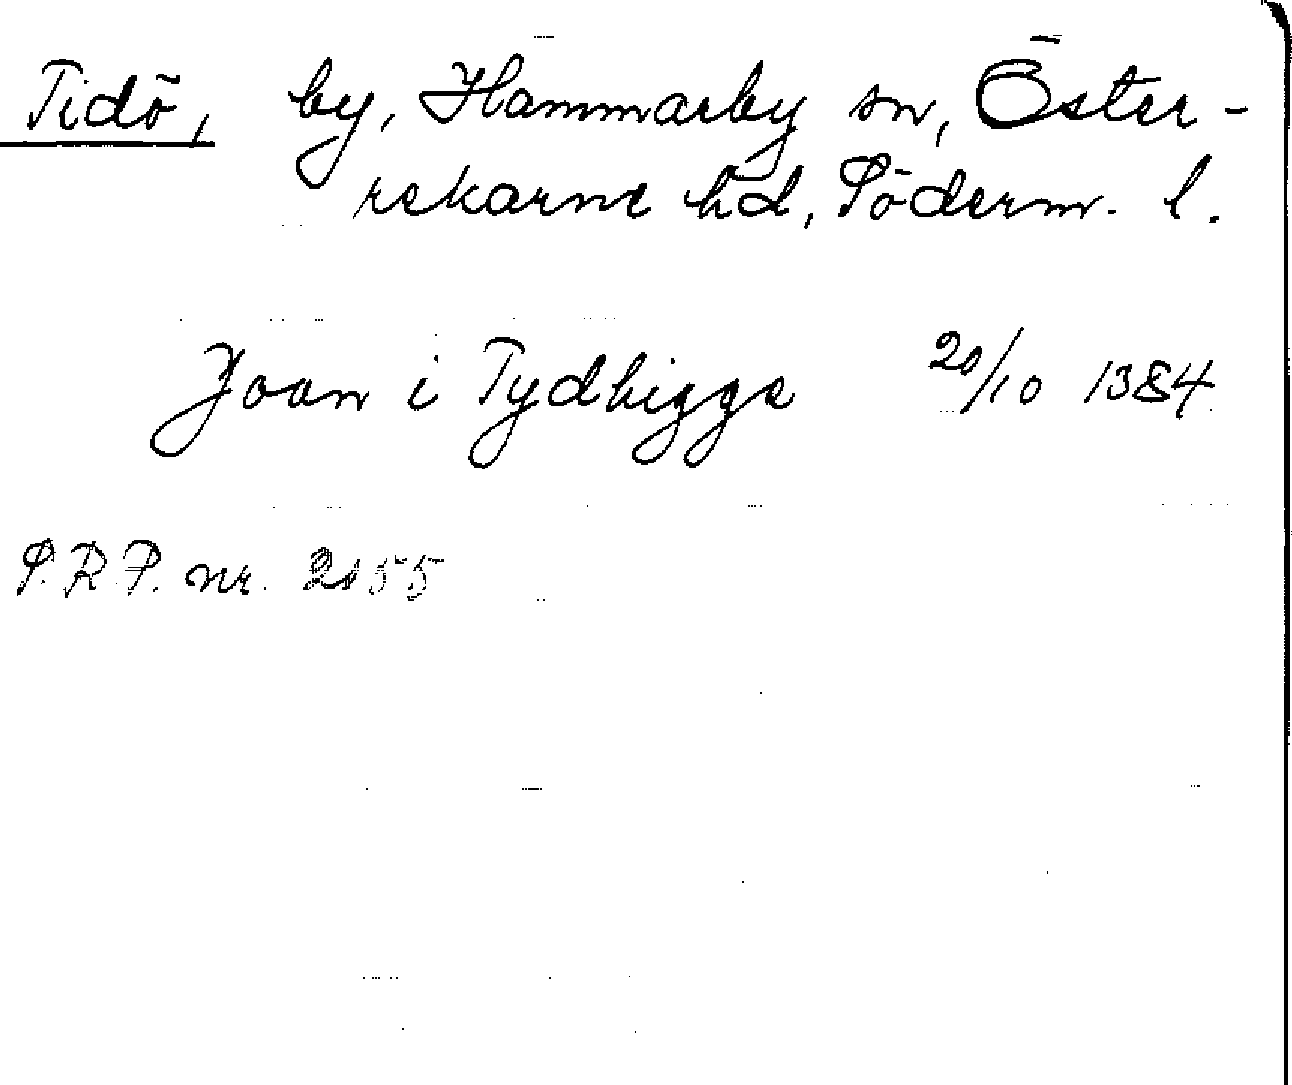 Tidö, by, Hammarby sn, Öster-
rekarne hd, Söderm. l.
Joan i Tydhiggæ 20/10 1384
S.R.P. nr. 2155